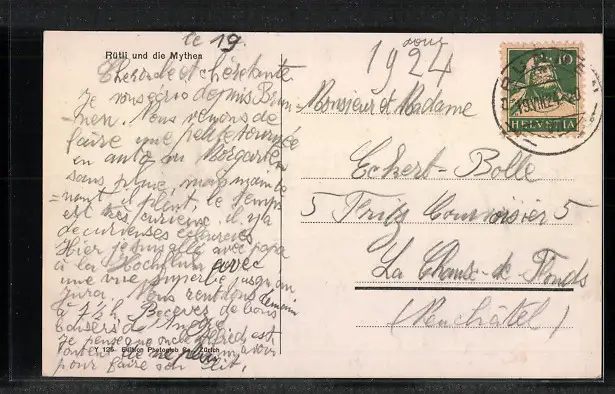 Rütli und die Mythen
le 19 août
1924
Cher oncle et chère tante
Je vous écris depuis Brun-
nen. Nous venons de
faire une petite tournée
en auto au Morgarten
sans pluie, mais mainte
=nant il pleut, le temps
est très curieux. Il y a
de curieuses éclaircies
Hier je suis allé avec papa
à la Hochfluh avec
une vue superbe jusqu'au
Jura. Nous rentrons demain
à 7½ h. Recevez de bons
baisers d'
Je pense que oncle Alfred est
pour faire son lit.
T 126 Edition Photoglob Co., Zürich
10
HELVETIA
Monsieur et Madame
Eckert-Bolle
5 Fritz Courvoisier 5
La Chaux-de-Fonds
(Neuchâtel)